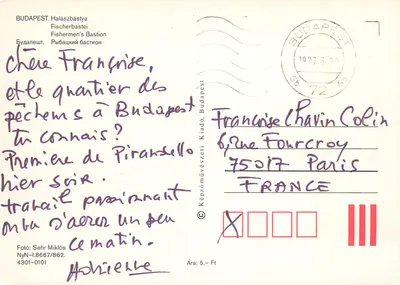 BUDAPEST. Halászbástya
Fischerbastei
Fishermen's Bastion
Будапешт. Рыбацкий бастион
chère Françoise,
et le quartier des
pêcheurs à Budapest
tu connais?
Première de Pirandello
hier soir.
travail passionnant
on va s'aérer un peu
ce matin.
Adrienne
Foto: Sehr Miklós
NyN-I.8667/862.
4301-0101
Ára: 5,– Ft
© Képzőművészeti Kiadó, Budapest
BUDAPEST
72
Françoise Chavin Colin
6, rue Fourcroy
75017 Paris
FRANCE